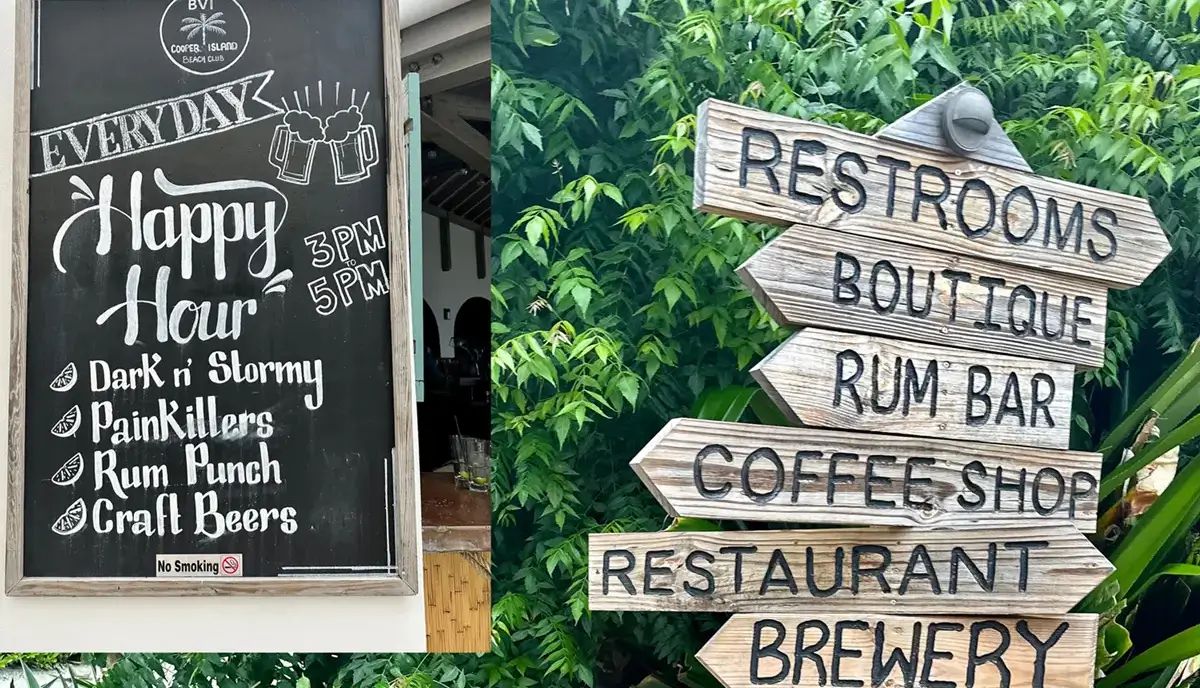 BVI
COOPER ISLAND
BEACH CLUB
EVERYDAY
Happy
Hour
3PM
TO
5PM
Dark n' Stormy
PainKillers
Rum Punch
Craft Beers
No Smoking
RESTROOMS
BOUTIQUE
RUM BAR
COFFEE SHOP
RESTAURANT
BREWERY